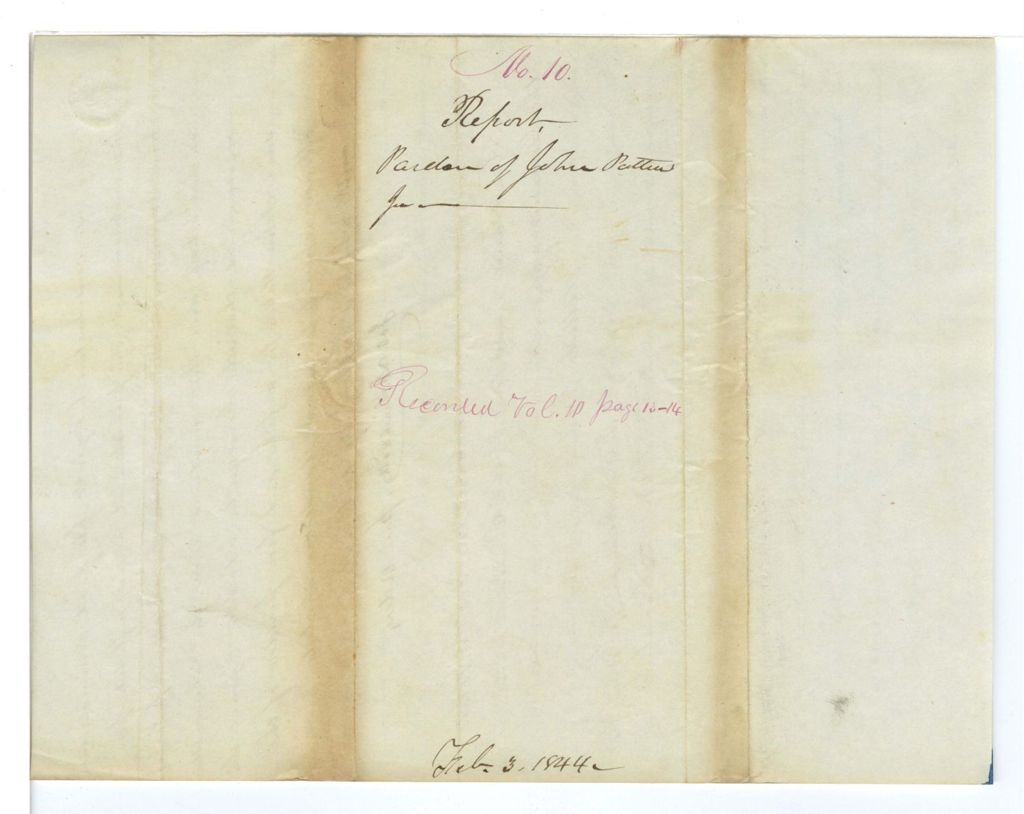 No. 10.
Report,
Pardon of John Patten
Jr
Recorded Vol. 10 page 13-14
Feb. 3. 1844